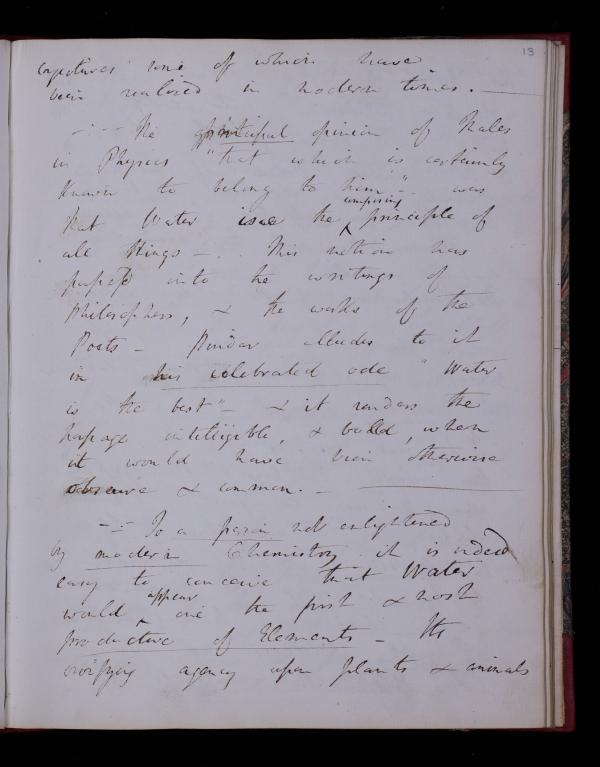 13
conjectures none of which have
been realised in modern times. —
— The principal opinion of Thales
in Physics "that which is certainly
known to belong to him" — was
that Water is the composing principle of
all things — . This notion has
passed into the writings of
Philosophers, & the works of the
Poets — Pindar alludes to it
in his celebrated ode "Water
is the best" — & it renders the
passage intelligible, & bold, when
it would have been otherwise
obscure & common. —
— To a person not enlightened
by modern Chemistry it is indeed
easy to conceive that Water
would appear one the first & most
productive of Elements — Its
vivifying agency upon plants & animals